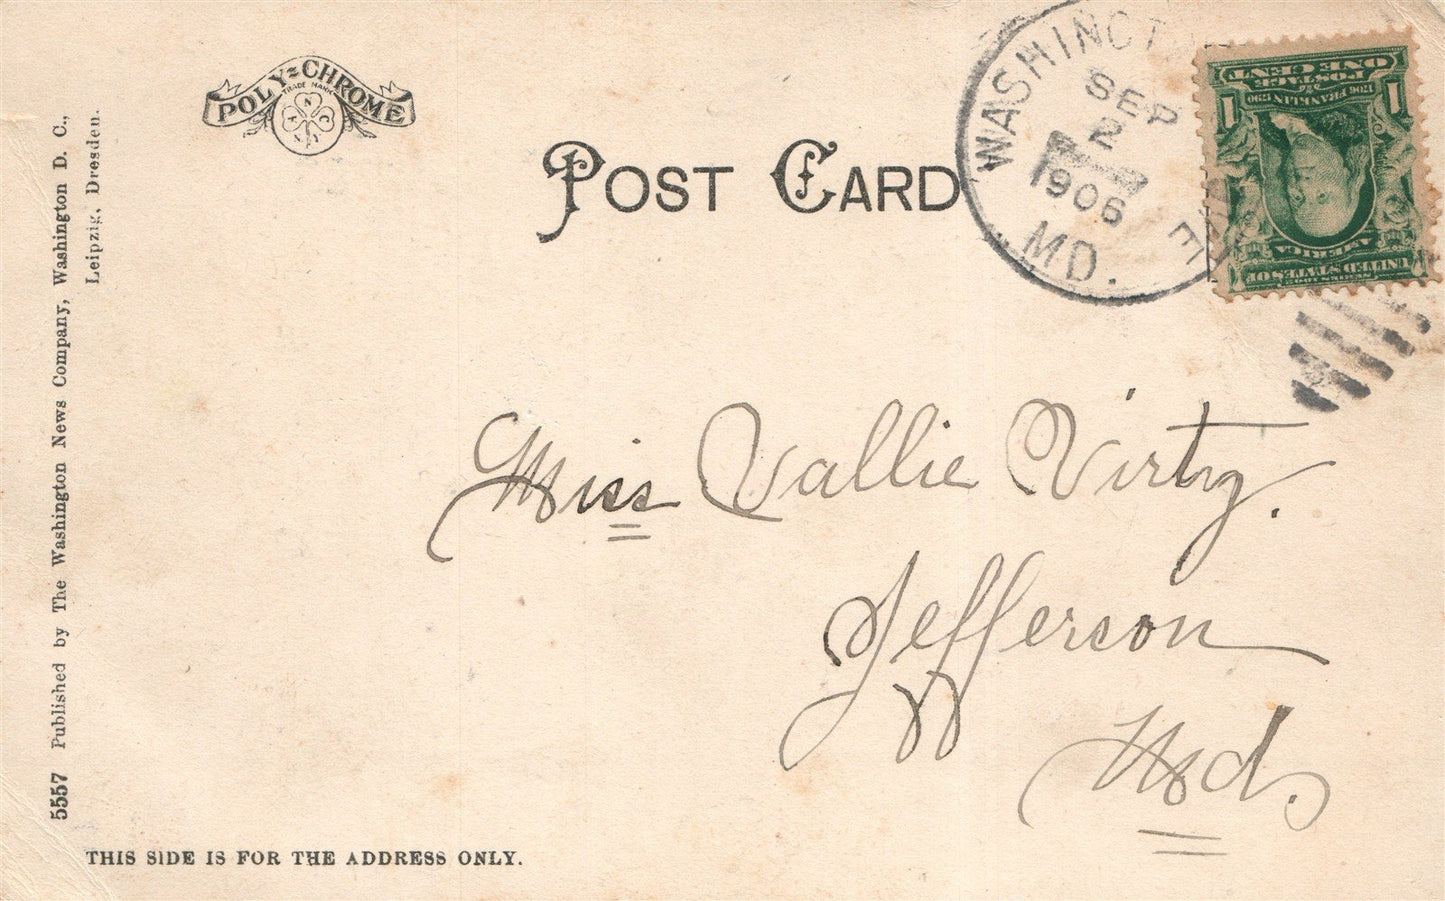 POLY-CHROME
TRADE MARK
POST CARD
WASHINGT
SEP
2
1906
MD.
ONE CENT
POSTAGE
1706 FRANKLIN 1790
1 1
AMERICA
UNITED STATES OF
SERIES 1902
Miss Vallie Virtz.
Jefferson
Md.
5557 Published by The Washington News Company, Washington D. C.,
Leipzig, Dresden.
THIS SIDE IS FOR THE ADDRESS ONLY.